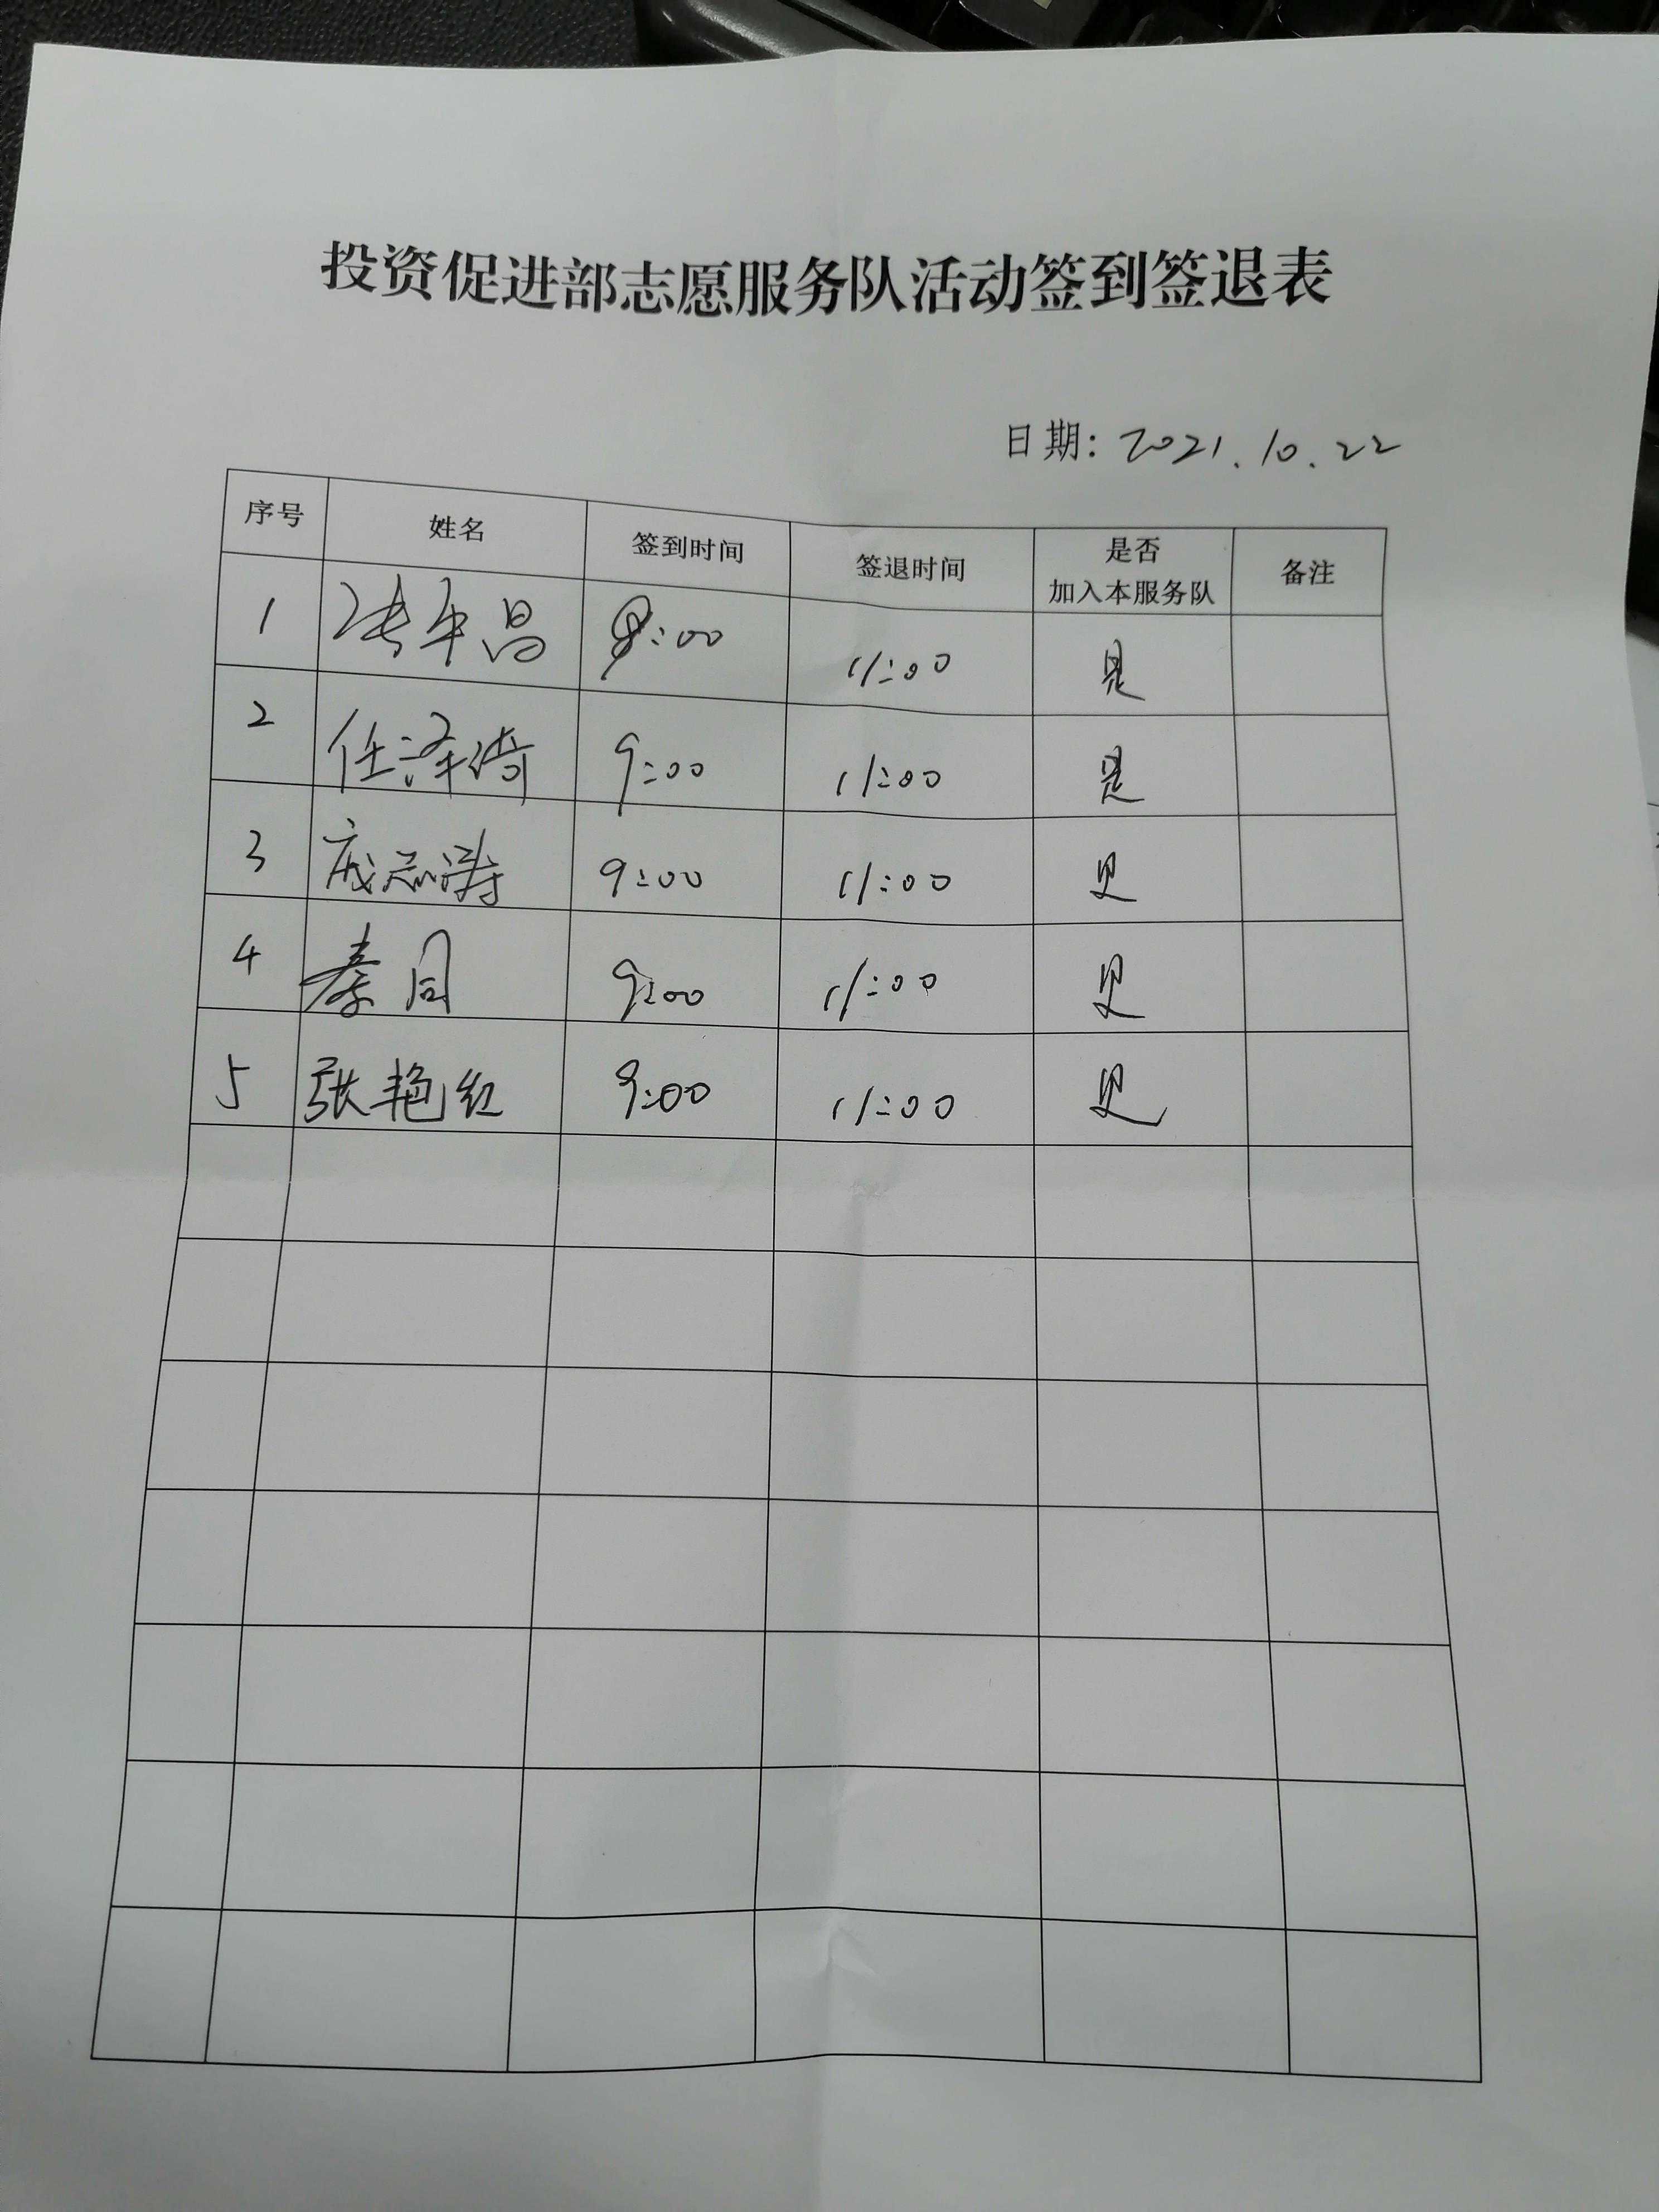 投资促进部志愿服务队活动签到签退表
日期: 2021.10.22
序号 姓名 签到时间 签退时间 是否加入本服务队 备注
1 9:00 11:00 是
2 任泽 9:00 11:00 是
3 9:00 11:00 是
4 秦 9:00 11:00 是
5 张艳红 9:00 11:00 是